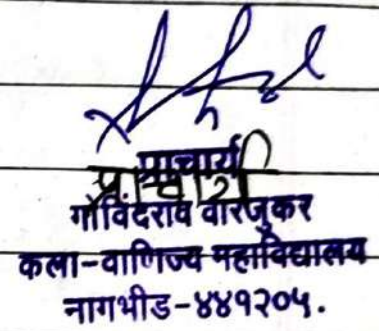 प्राचार्य
प्राचार्य
गोविंदराव वारजुकर
कला-वाणिज्य महाविद्यालय
नागभीड-४४१२०५.